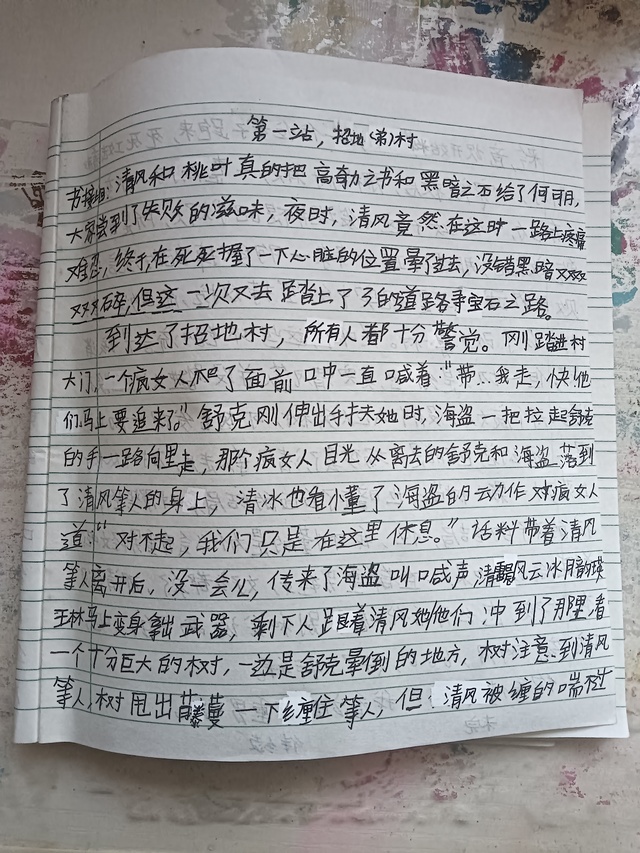 第一站，招地(弟)村
书接上回：清风和桃叶真的把高奇之书和黑暗之石给了何玥，
大家尝到了失败的滋味，夜时，清风竟然在这时一路上疼痛
难忍，终于在死死握了一下心脏的位置晕了过去，没错黑暗双双双
双双石碎，但这一次又去踏上了了的道路寻宝石之路。
到达了招地村，所有人都十分警觉。刚踏进村
大门，一个疯女人爬了面前口中一直喊着："带...我走，快他
们马上要追来了。"舒克刚伸出手扶她时，海盗一把拉起舒克
的手一路向里走，那个疯女人目光从离去的舒克和海盗落到
了清风等人的身上，清冰也看懂了海盗的动作对疯女人
道："对不起，我们只是在这里休息。"话料带着清风
等人离开后，没一会儿，传来了海盗叫喊声清霜风云冰月韵瑛
王林马上变身拿出武器，剩下人跟着清风她他们冲到了那里看
一个十分巨大的树，一边是舒克晕倒的地方，树注意到清风
等人，树甩出藤蔓一下缠住等人，但清风被缠的喘不过